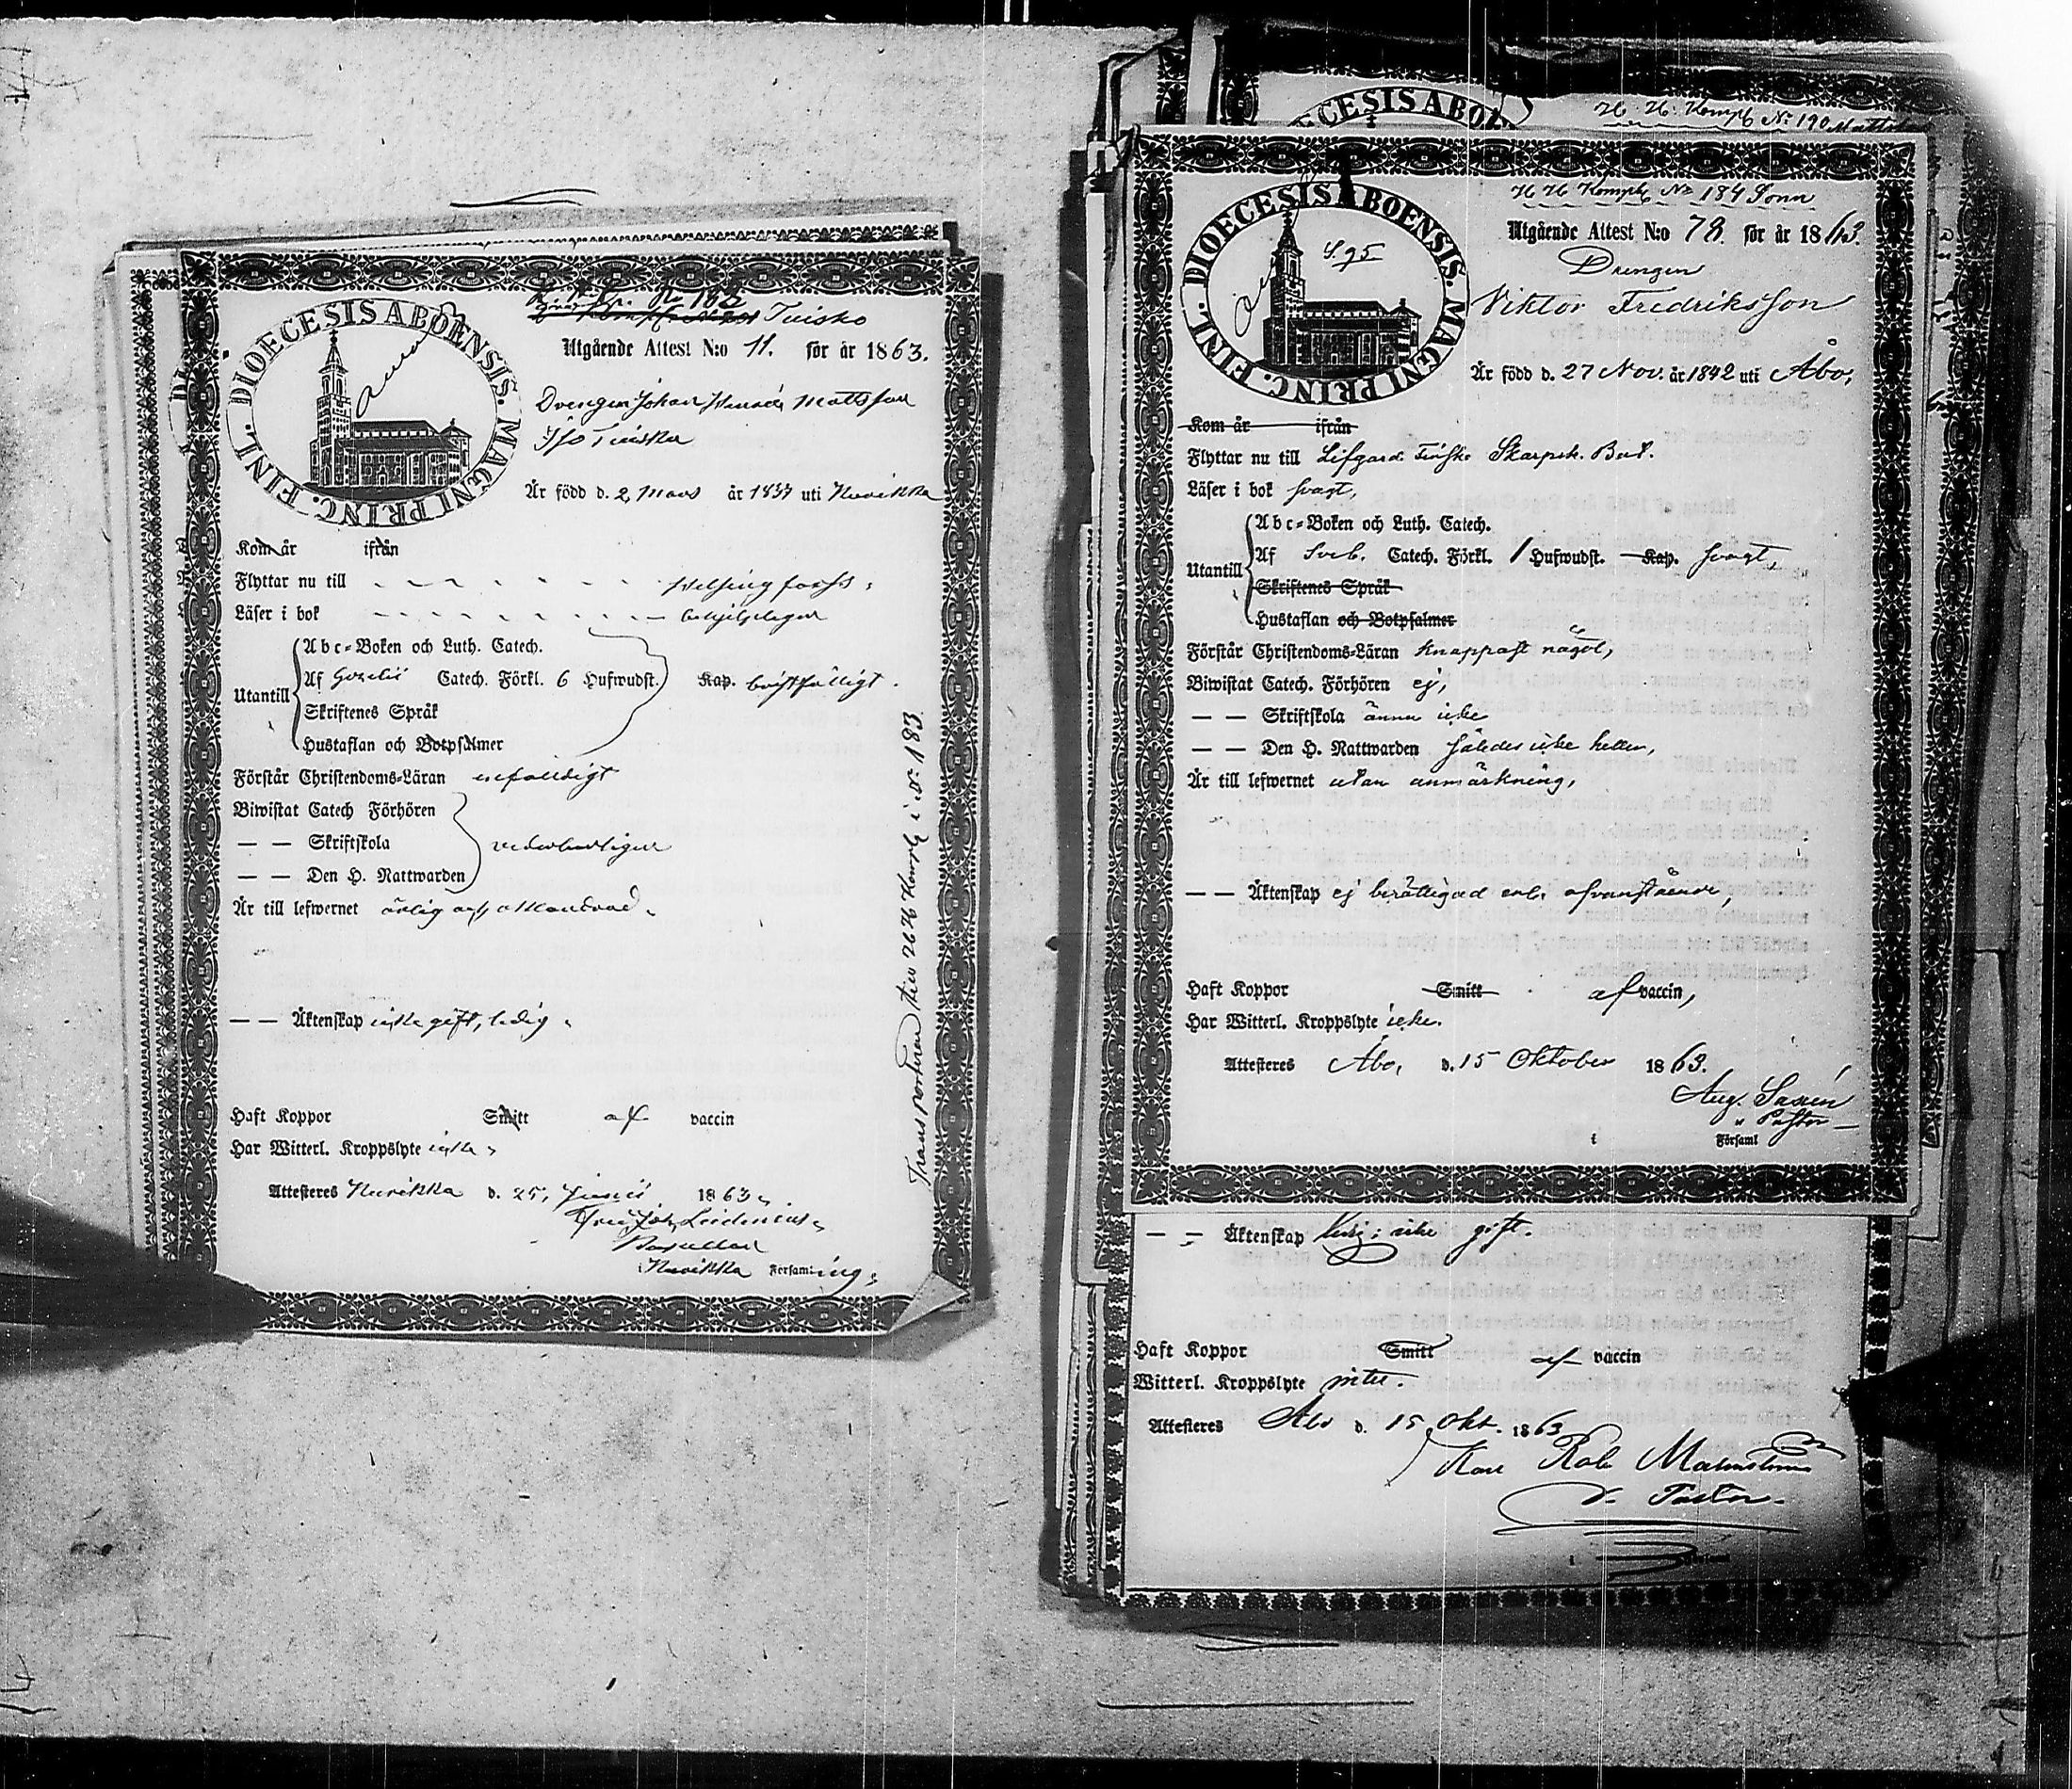 DIOECESIS ABOENSIS. MAGNI PRINC. FINL.
Tuisko
Utgående Attest N:o 11. för år 1863.
Drengen Johan Mattsson
Tuiska
Är född d. 2 Mars år 1837 uti Kuvikka
Kom år ifrån
Flyttar nu till Helsingfors.
Läser i bok behjelpligen
Utantill
Abc-Boken och Luth. Catech.
Af Gezelii Catech. Förkl. 6 Hufwudst. Kap. bristfälligt.
Skriftenes Språk
Hustaflan och Botpsalmer
Förstår Christendoms-Läran enfaldigt
Biwistat Catech Förhören
— — Skriftskola vederbörligen
— — Den H. Nattwarden
Är till lefwernet ärlig och oklandrad.
— — Äktenskap icke gift, ledig.
Haft Koppor Smitt af vaccin
Har Witterl. Kroppslyte icke,
Attesteres Kuvikka d. 25, Junii 1863,
Kuvikka Församl:ing,
i N: 183
H. H. Komp N: 190 Matts
DIOECESIS ABOENSIS. MAGNI PRINC. FINL.
H H Komph No 184 Sonn
S. 95
Utgående Attest N:o 78. för år 1863.
Drengen
Viktor Fredriksson
Är född d. 27 Nov. år 1842 uti Åbo,
Kom år ifrån
Flyttar nu till Lifgard. Finska Skarpsk. Bat.
Läser i bok svagt,
Utantill
Abc-Boken och Luth. Catech.
Af Sveb. Catech. Förkl. 1 Hufwudst. Kap. svagt,
Skriftenes Språk
Hustaflan och Botpsalmer
Förstår Christendoms-Läran knappast något,
Biwistat Catech. Förhören ej,
— — Skriftskola ännu icke
— — Den H. Nattwarden således icke heller,
Är till lefwernet utan anmärkning,
— — Äktenskap ej berättigad enl. ofvanstående,
Haft Koppor Smitt af vaccin,
Har Witterl. Kroppslyte icke.
Attesteres Åbo, d. 15 Oktober 1863.
Aug.
Pastor
i Församl
— — Äktenskap ledig: icke gift.
Haft Koppor Smitt af vaccin
Witterl. Kroppslyte intet.
Attesteres Åbo d. 15 Okt. 1863
Karl Rob Malmström
v. Pastor.